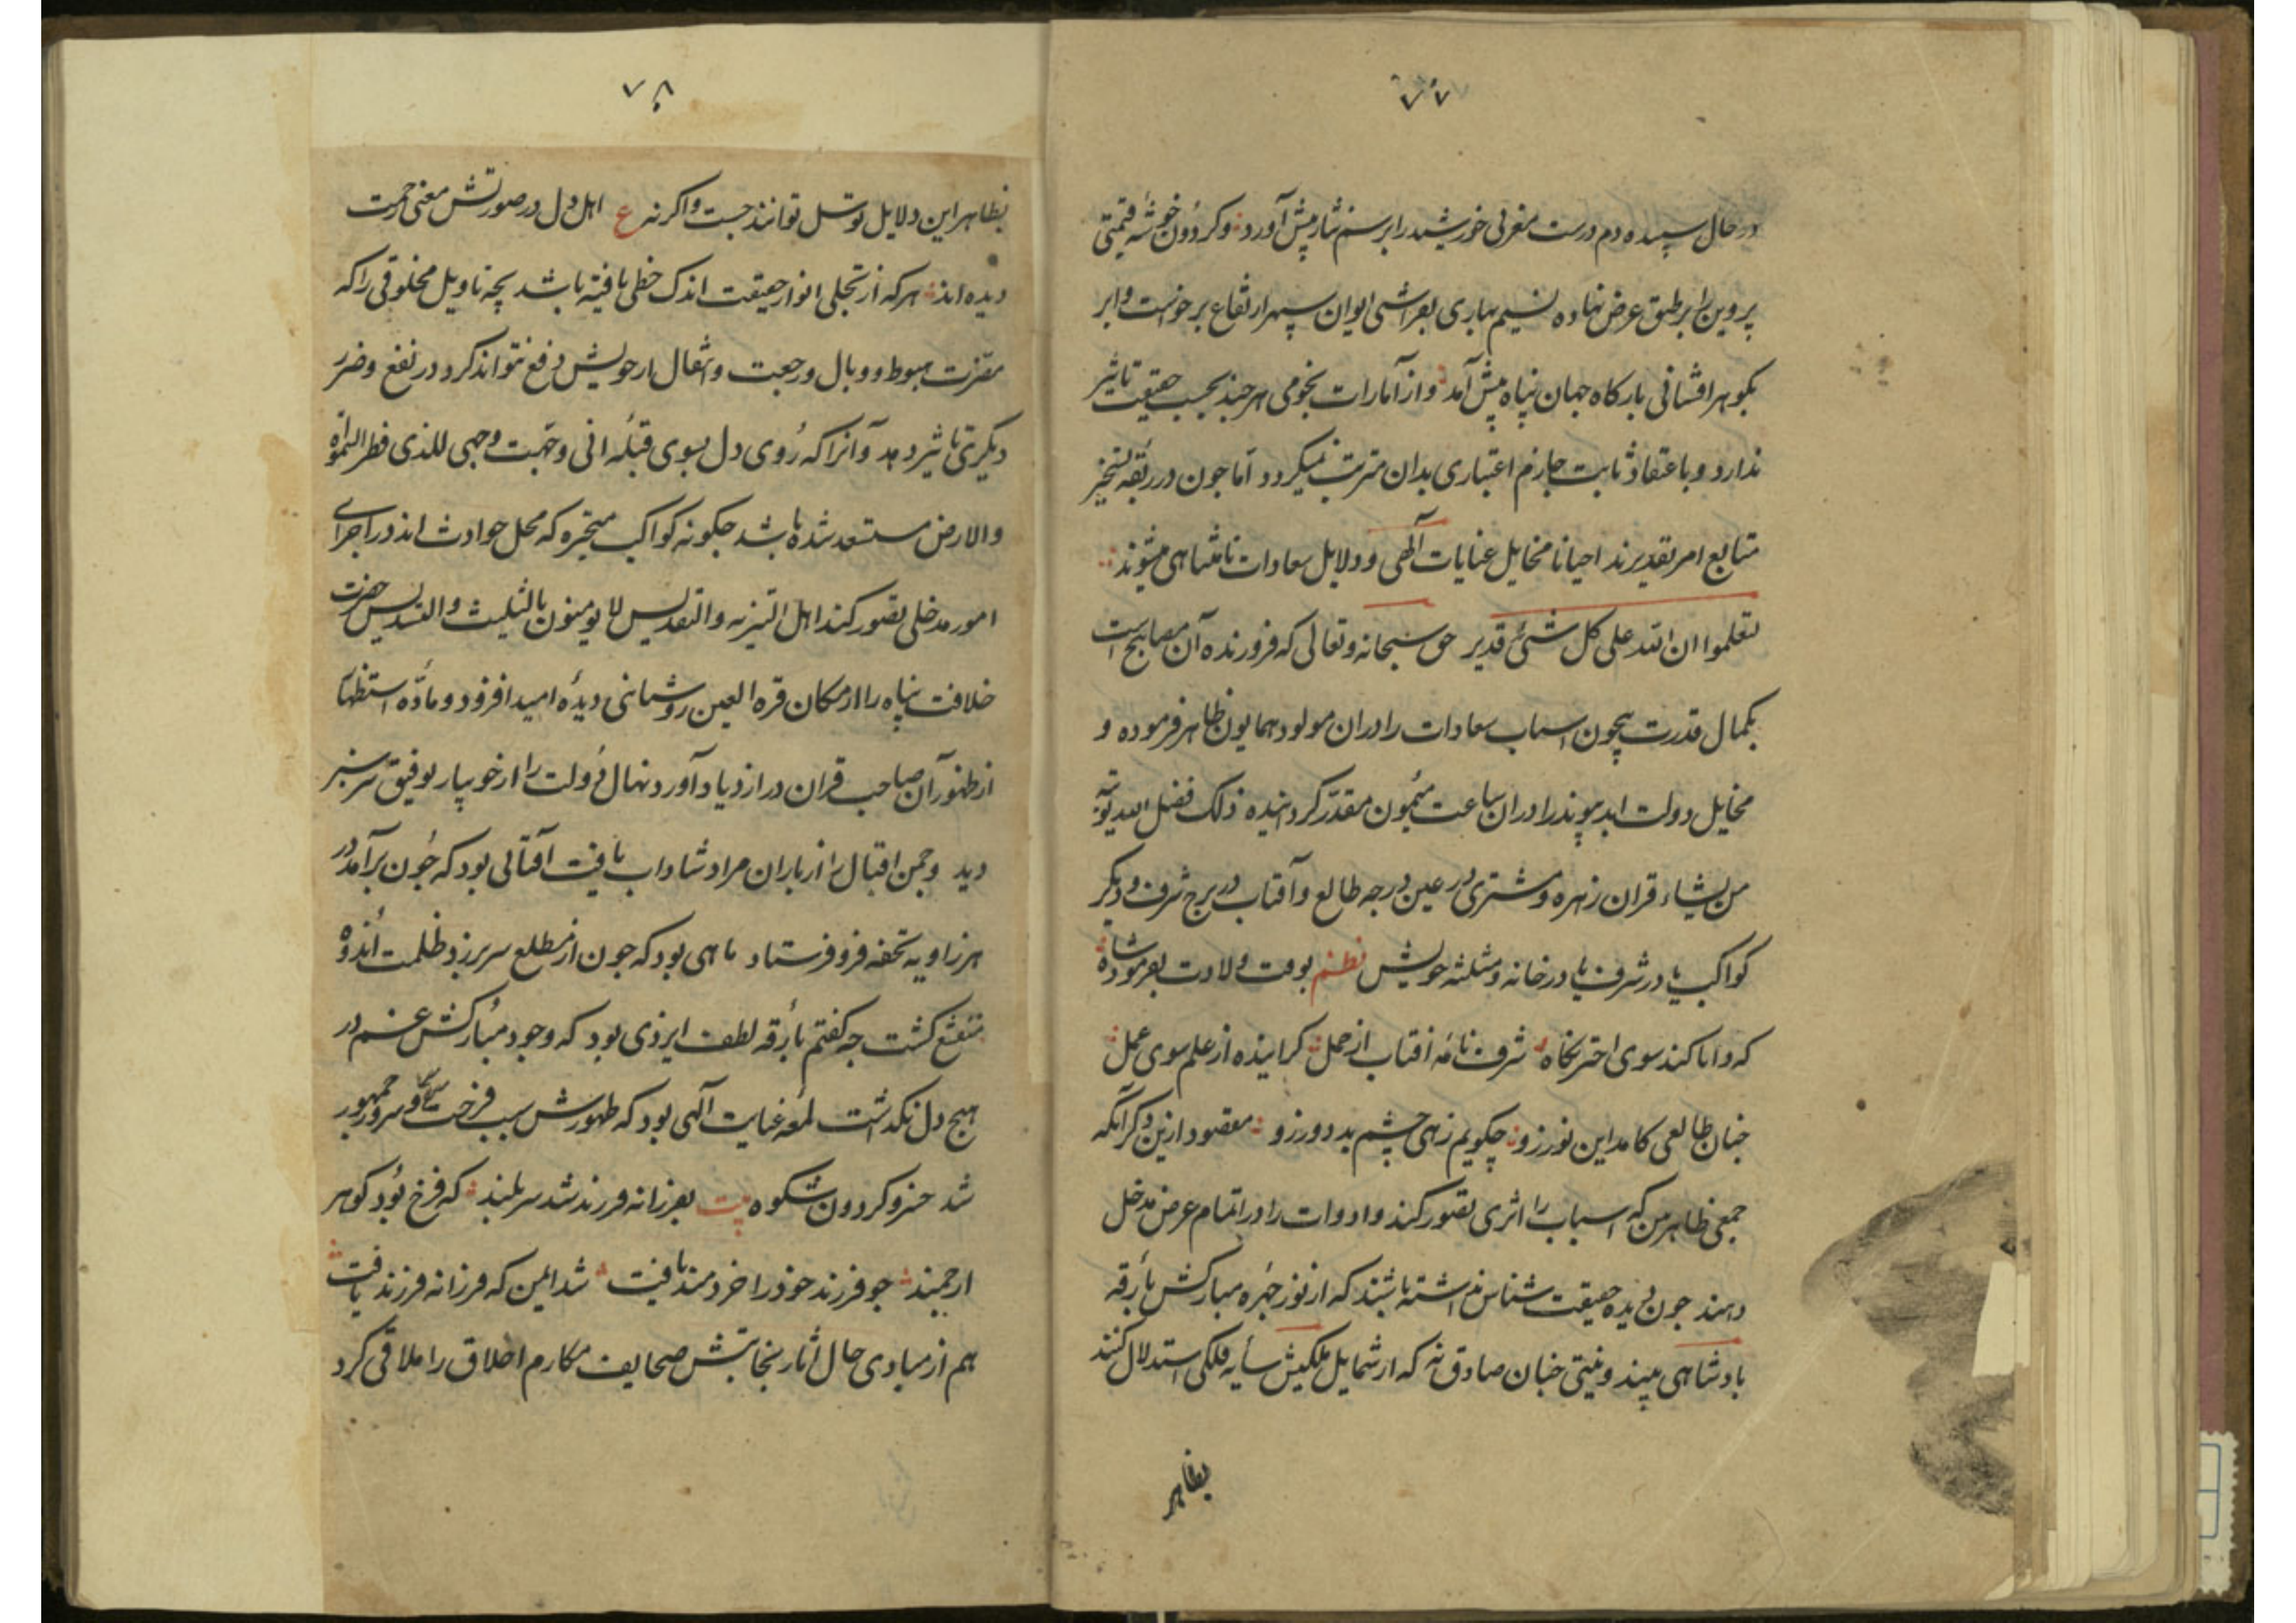 ۷۷
در حال سپیده دم درست مغربی خورشید را برسم نثار پیش آورد و کردون خوشهٔ قیمتی
پروین را بر طبق عرض نهاده نسیم بهاری بفراشی ایوان سپهر ارتفاع برخواست و ابر
بکوهر افشانی بارکاه جهان پناه پیش آمد و از امارات نجومی هرچند بحسب حقیقت تاثیر
ندارد و باعتقاد ثابت جازم اعتباری بدان مترتب نمیکردد اما چون در ربقه تسخیر
متابع امر تقدیرند احیانا مخایل عنایات آلهی و دلایل سعادات نامتناهی میشوند
لتعلموا ان الله علی کل شیء قدیر حق سبحانه و تعالی که فروزنده آن مصابیح است
بکمال قدرت بیچون اسباب سعادات را در ان مولود همایون ظاهر فرموده و
مخایل دولت ابد پیوند را در ان ساعت میمون مقدر کردانیده ذلک فضل الله یوتیه
من یشاء قران زهره و مشتری در عین درجه طالع و آفتاب در برج شرف و دیکر
کواکب یا در شرف یا در خانه و مثلثه خویش نظم بوقت ولادت بفرمود شاه
که دانا کند سوی اختر نکاه شرف نامه افتاب از حمل کراینده از علم سوی عمل
چنان طالعی کامد این نور زو چکویم زهی چشم بد دور زو مقصود ازین ذکر آنکه
جمعی ظاهر بین که اسباب را اثری تصور کنند و ادوات را در اتمام عرض مدخل
دهند چون دیده حقیقت شناس نداشته باشند که از نور چهره مبارکش بارقه
بادشاهی بینند و نیتی چنان صادق نه که از شمایل ملکیش سایه فلکی استدلال کنند
بظاهر
۷۸
بظاهر این دلایل توسل توانند جست و اکر نه ع اهل دل در صورتش معنی رحمت
دیده اند هر که از تجلی انوار حقیقت اندک حظی یافته باشد بچه تاویل مخلوقی را که
مضرت هبوط و وبال و رجعت و انتقال از خویش دفع نتواند کرد در نفع و ضرر
دیکری تاثیر دهد و آنرا که روی دل بسوی قبله انی وجهت وجهی للذی فطر السموات
والارض مستعد شده باشد چکونه کواکب متحیره که محل حوادث اند در اجرای
امور مدخلی تصور کند اهل التنزیه والتقدیس لا یومنون بالتثلیث والتسدیس حضرت
خلافت پناه را از مکان قرة العین روشنایی دیدهٔ امید افزود و ماده استظهار
از ظهور آن صاحب قران در ازدیاد آورد نهال دولت را از جویبار توفیق سرسبز
دید و چمن اقبال را از باران مراد شاداب یافت آفتابی بود که چون برآمد در
هر زاویه تحفه فرو فرستاد ماهی بود که چون از مطلع سر برزد ظلمت اندوه
منقشع کشت چه کفتم بارقه لطف ایزدی بود که وجود مبارکش غم در
هیچ دل نکذاشت لمعه عنایت آلهی بود که ظهورش سبب فرحت و سرور جمهور
شد خسرو کردون شکوه بیت بفرزانه فرزند شد سر بلند که فرخ بود کوهر
ارجمند چو فرزند خود را خردمند یافت شد ایمن که فرزانه فرزند یافت
هم از مبادی حال آثار نجابتش صحایف مکارم اخلاق را ملاقی کرد